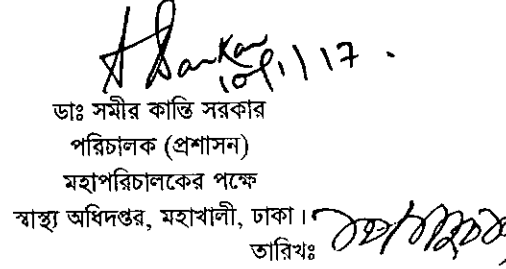 10/1/17
ডাঃ সমীর কান্তি সরকার
পরিচালক (প্রশাসন)
মহাপরিচালকের পক্ষে
স্বাস্থ্য অধিদপ্তর, মহাখালী, ঢাকা।
তারিখঃ